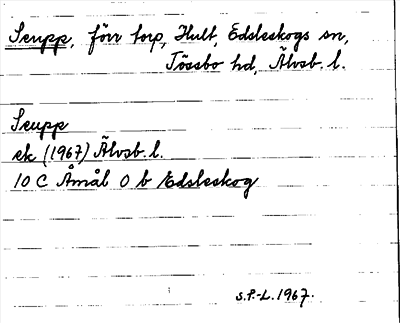 Seupp, förr torp, Hult, Edsleskogs sn,
Tössbo hd, Älvsb. l.
Seupp
ek (1967) Älvsb. l.
10 C Åmål 0 b Edsleskog
S.F.-L. 1967.